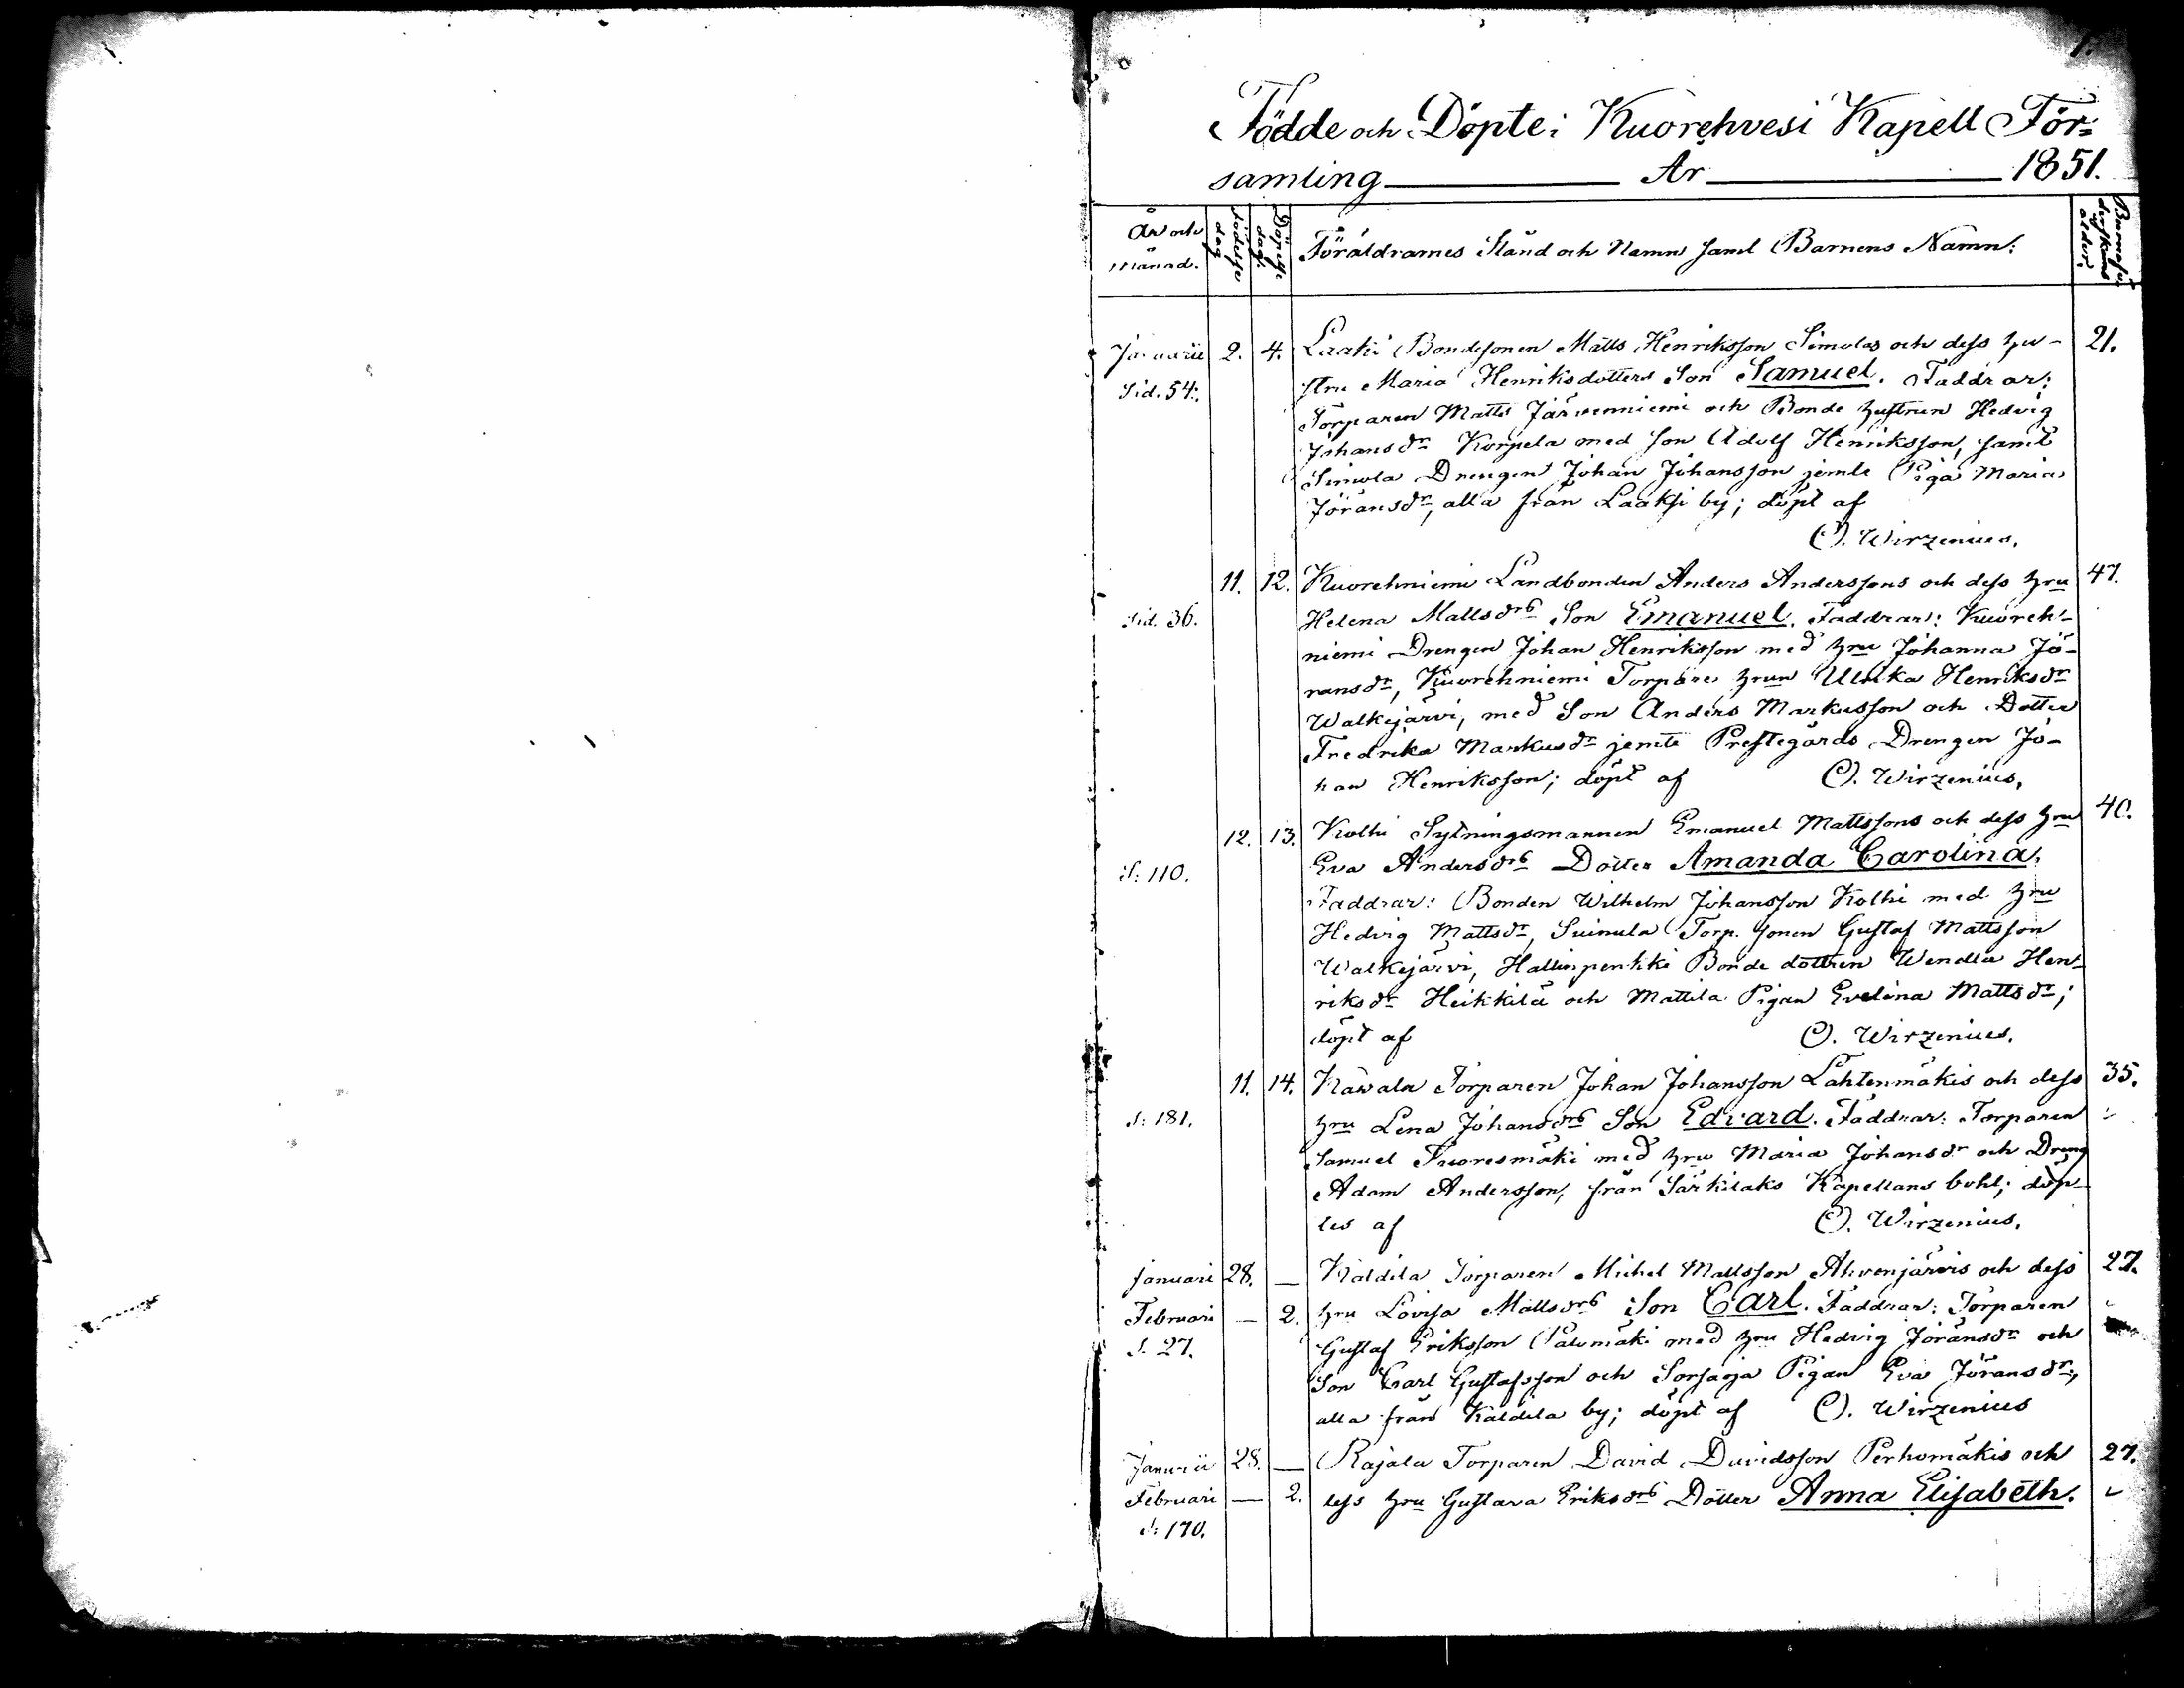 1.
Födde och Döpte i Kuorehvesi Kapell För=
samling År 1851.
År och Månad. Födelse dag Döpelse dag. Föräldrarnes Stånd och Namn samt Barnens Namn. Barnaföderskans ålder.
Januarii 2. 4. Laaksi Bondesonen Matts Henriksson Simolas och dess hu- 21.
Sid. 54. stru Maria Henriksdotters Son Samuel. Faddrar:
Torparen Matts Järvenniemi och Bonde hustrun Hedvig
Johansdr Korpela med son Adolf Henriksson, samt
Simola Drengen Johan Johansson jemte Piga Maria
Jöransdr, alla från Laaksi by; döpt af
O. Wirzenius.
11. 12. Kuorehniemi Landbonden Anders Anderssons och dess hru 47.
Sid. 36. Helena Mattsdrs Son Emanuel. Faddrar: Kuoreh-
niemi Drengen Johan Henriksson med hru Johanna Jö-
ransdr, Kuorehniemi Torpare hrun Ulrika Henriksdr
Walkejärvi, med Son Anders Markusson och Dotter
Fredrika Markusdr jemte Prestegårds Drengen Jo-
han Henriksson; döpt af O. Wirzenius.
12. 13. Kolhi Sytningsmannen Emanuel Mattssons och dess hru 40.
S: 110. Eva Andersdrs Dotter Amanda Carolina.
Faddrar: Bonden Wilhelm Johansson Kolhi med hru
Hedvig Mattsdr, Suinula Torp. sonen Gustaf Mattsson
Walkejärvi, Hallinpenkki Bonde dottren Wendla Hen-
riksdr Heikkilä och Mattila Pigan Evelina Mattsdr;
döpt af O. Wirzenius.
11. 14. Kawala Torparen Johan Johansson Lahtenmäkis och dess 35.
S: 181. hru Lena Johansdrs Son Edvard. Faddrar: Torparen
Samuel Tuoresmäki med hru Maria Johansdr och Dreng
Adam Andersson, från Särkilaks Kapellans bohl; döp-
tes af O. Wirzenius.
Januari 28. — Kaldila Torparen Michel Mattsson Ahvenjärvis och dess 27.
Februari — 2. hru Lovisa Mattsdrs Son Carl. Faddrar: Torparen
S. 27. Gustaf Eriksson Palomäki med hru Hedvig Jöransdr och
Son Carl Gustafsson och Sorsarja Pigan Eva Jöransdr,
alla från Kaldila by; döpt af O. Wirzenius
Januarii 28. — Rajala Torparen David Davidsson Perhomäkis och 27.
Februari — 2. dess hru Gustava Eriksdrs Dotter Anna Elisabeth.
S: 170.